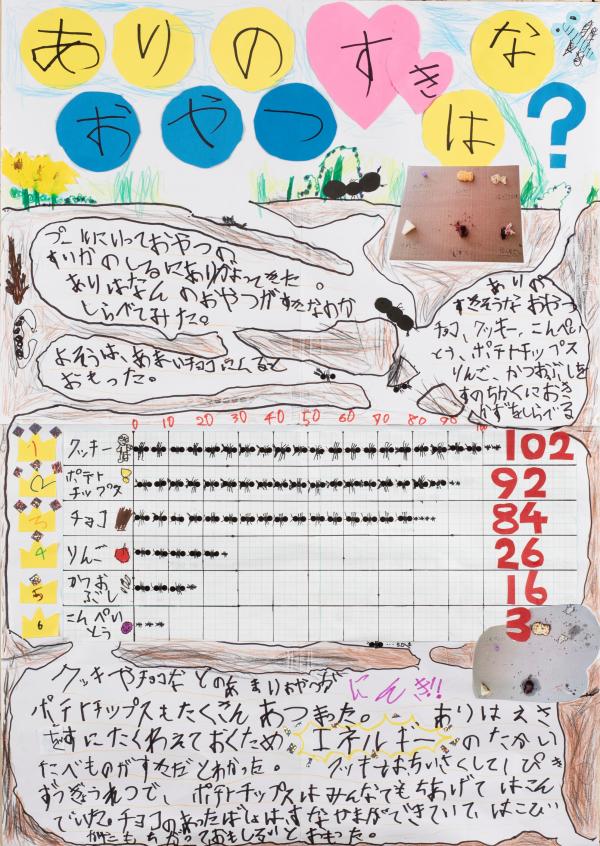 ありのすきな
おやつは?
プールにいっておやつの
すいかのしるにありがよってきた。
ありはなんのおやつがすきなのか
しらべてみた。
よそうは、あまいチョコに
おもった。
ありの
すきそうなおやつ
チョコ、クッキー、こんぺい
とう、ポテトチップス
りんご、かつおぶしを
すのちかくにおき
かずをしらべる
0 10 20 30 40 50 60 70 80 90 100
1 クッキー 102
2 ポテトチップス 92
3 チョコ 84
4 りんご 26
5 かつおぶし 16
6 こんぺいとう 3
クッキーやチョコなどのあまいおやつが にんき!!
ポテトチップスもたくさんあつまった。 ありはえさ
をすにたくわえておくため エネルギーのたかい
たべものがすきだとわかった。 クッキーはちいさくして1ぴき
ずつぎょうれつで、ポテトチップスはみんなでもちあげてはこん
でいた。チョコのあったばしょはすなやまができていて、はこび
かたもちがっておもしろいとおもった。